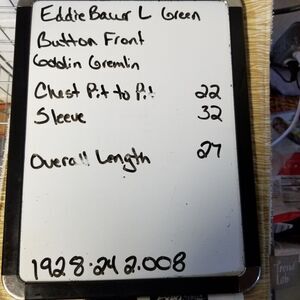 Eddie Bauer L Green
Button Front
Goblin Gremlin
Chest Pit to Pit 22
Sleeve 32
Overall Length 27
1928.242.008